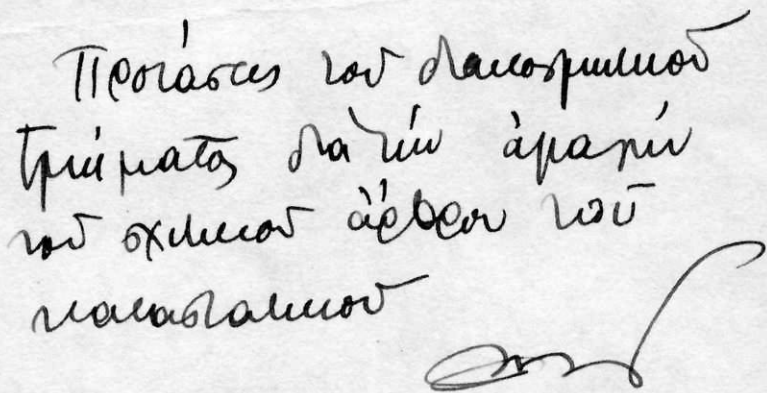 Προτάσεις τοῦ διακοσμητικοῦ
τμήματος διὰ τὴν ἀλλαγὴν
τοῦ σχετικοῦ ἄρθρου τοῦ
καταστατικοῦ